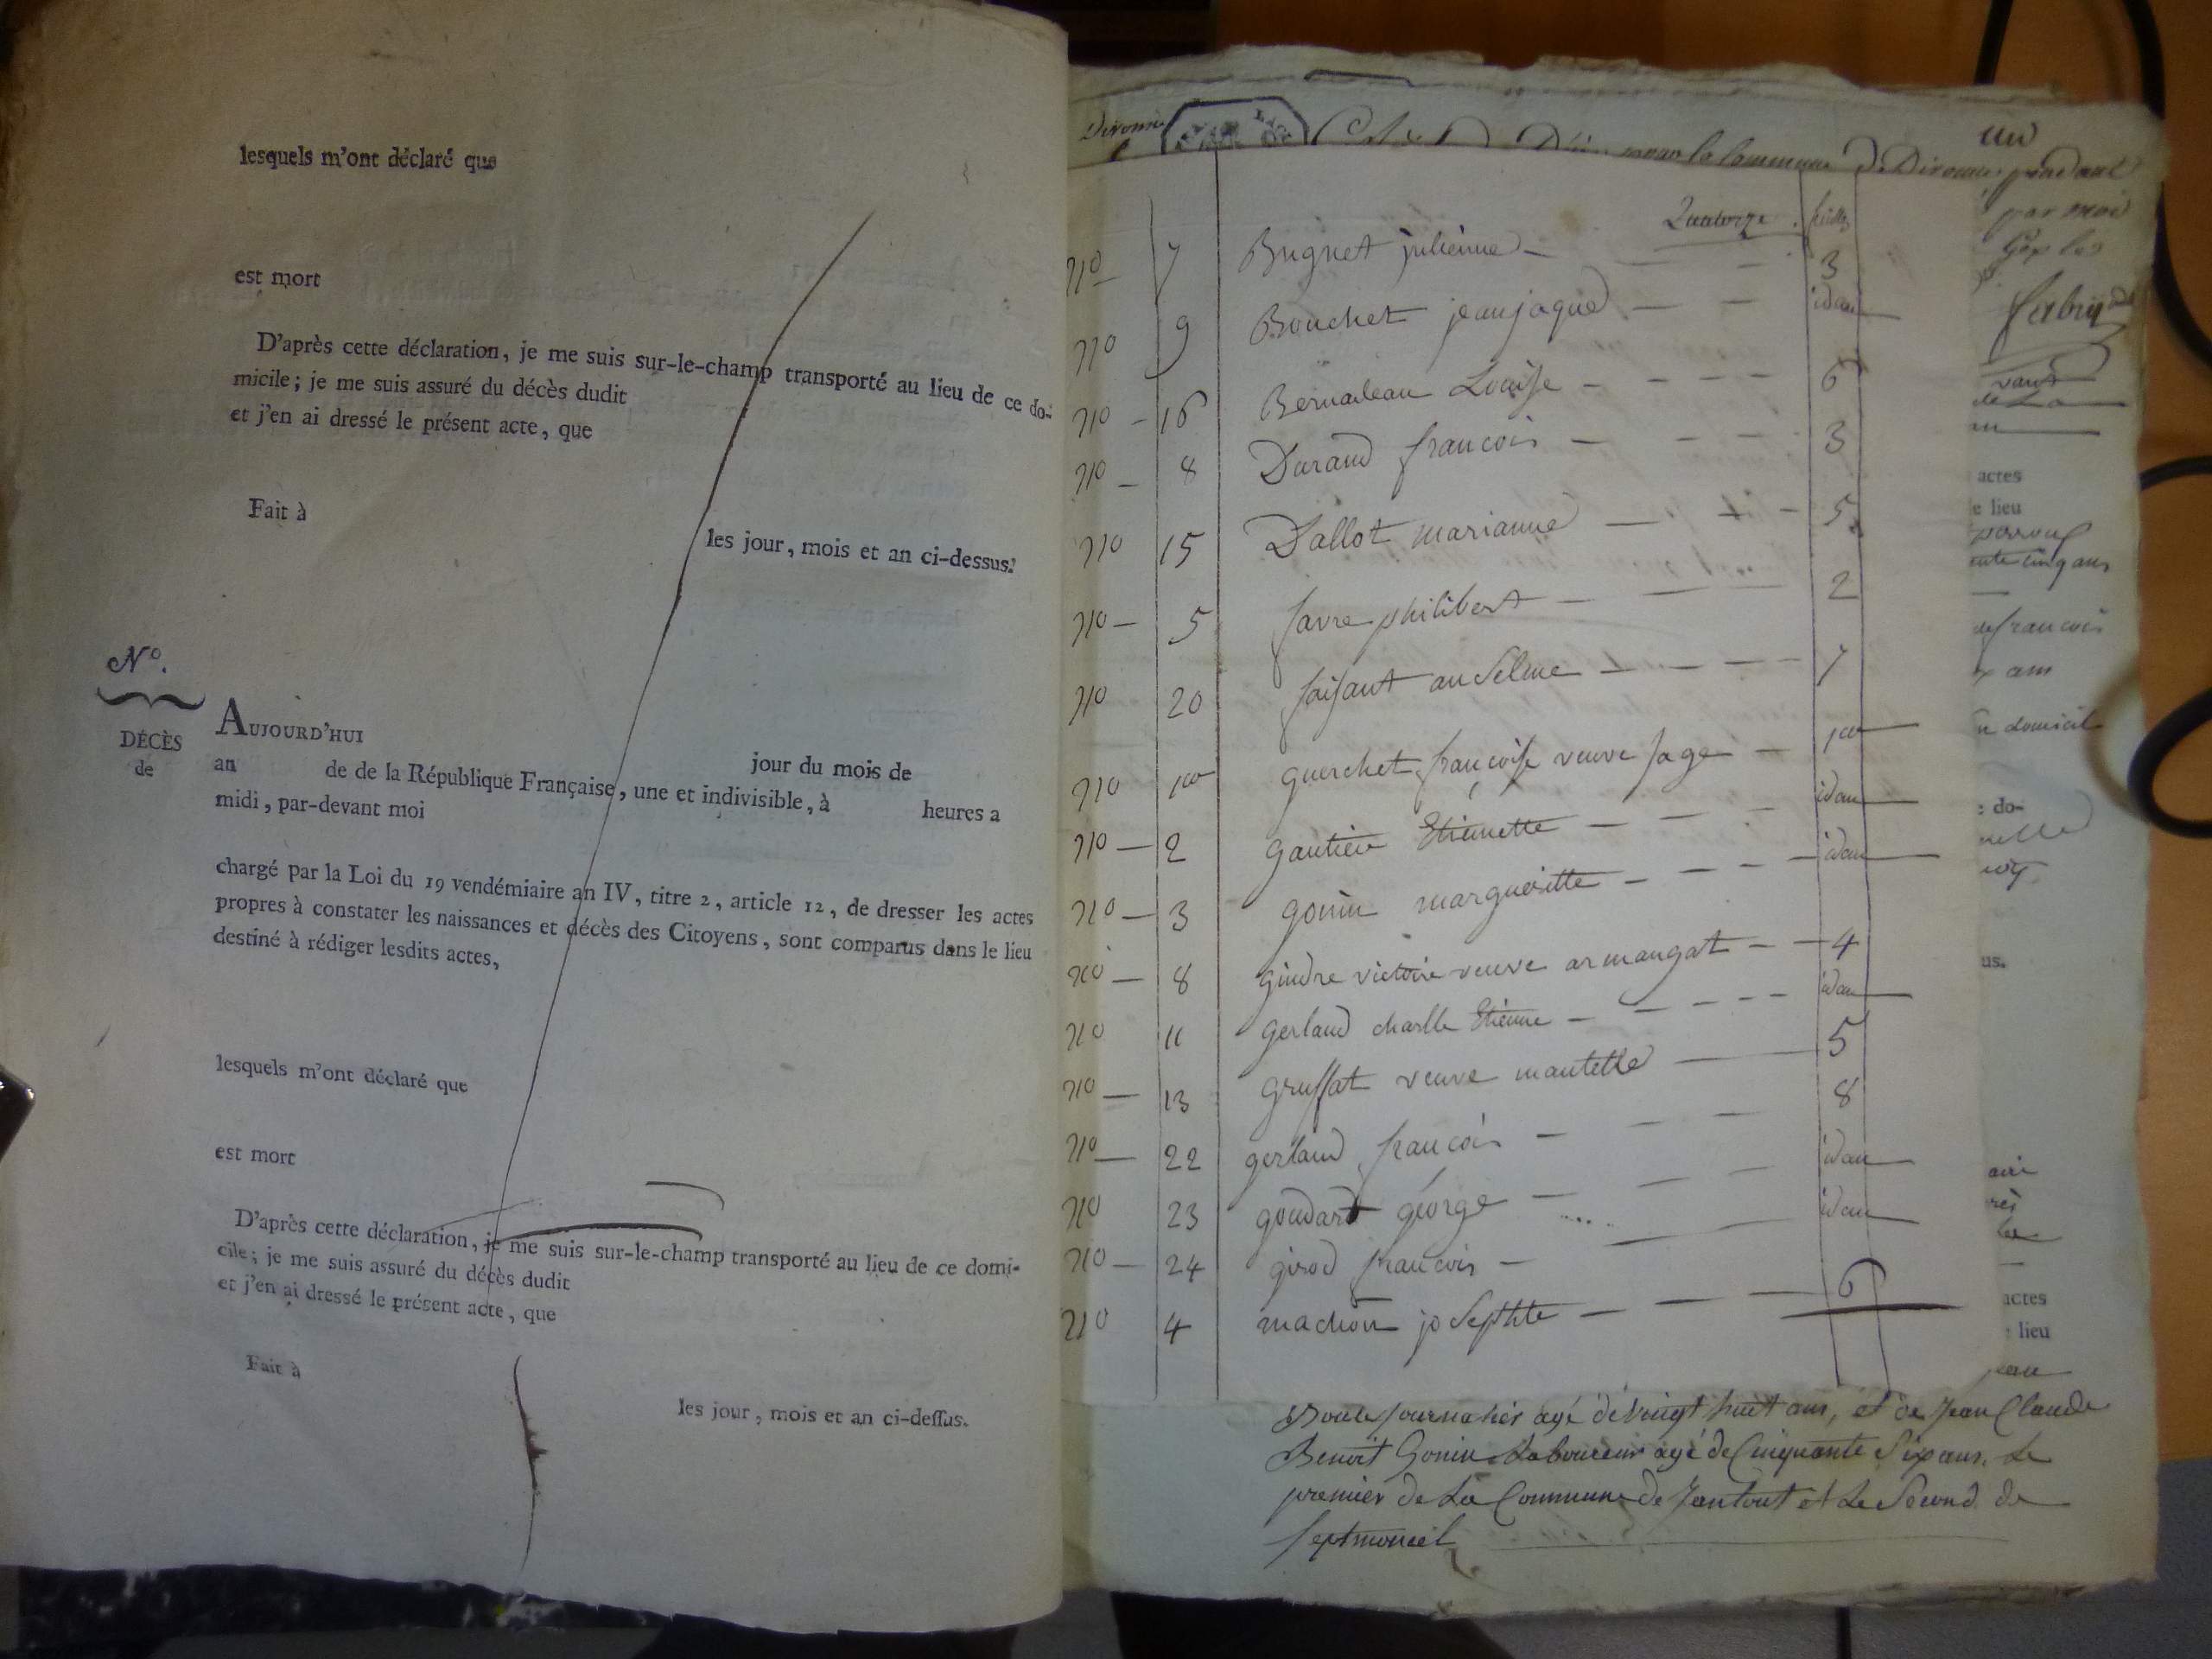 lesquels m'ont déclaré que
est mort
D'après cette déclaration, je me suis sur-le-champ transporté au lieu de ce do-
micile; je me suis assuré du décès dudit
et j'en ai dressé le présent acte, que
Fait à
les jour, mois et an ci-dessus.
N°.
DÉCÈS
de
AUJOURD'HUI
jour du mois de
an de de la République Française, une et indivisible, à heures a
midi, par-devant moi
chargé par la Loi du 19 vendémiaire an IV, titre 2, article 12, de dresser les actes
propres à constater les naissances et décès des Citoyens, sont comparus dans le lieu
destiné à rédiger lesdits actes,
lesquels m'ont déclaré que
est mort
D'après cette déclaration, je me suis sur-le-champ transporté au lieu de ce domi-
cile; je me suis assuré du décès dudit
et j'en ai dressé le présent acte, que
Fait à
les jour, mois et an ci-dessus.
Divonne
un
pour la Commune De Divonne pendant
Quatorze
n° 7 Brignet julienne 3
n° 9 Bouchet jean jaque idem
n° 16 Bernadeau Louise 6
n° 8 Durand francois 3
n° 15 Dallot marianne 5
n° 5 favre philibert 2
n° 20 faisant anselme 7
n° 1er guerchet françoise veuve sage 1er
n° 2 gautier Etiennette idem
n° 3 gonin margueritte idem
n° 8 gindre victoire veuve armangat 4
n° 11 gerland charlle Etienne idem
n° 13 gruffat veuve mantelle 5
n° 22 gerland francois 8
n° 23 goudard george idem
n° 24 girod francois idem
n° 4 machon josephte 6
par moi
Gex les
actes
e lieu
ente cinq ans
de francois
x ans
n domicil
: do-
us.
actes
lieu
journalier agé de vingt huit ans, et de Jean Claude
Benoit Gonin Laboureur agé de Cinquante Six ans, Le
premier de La Commune de et Le Second de
Septmoncel